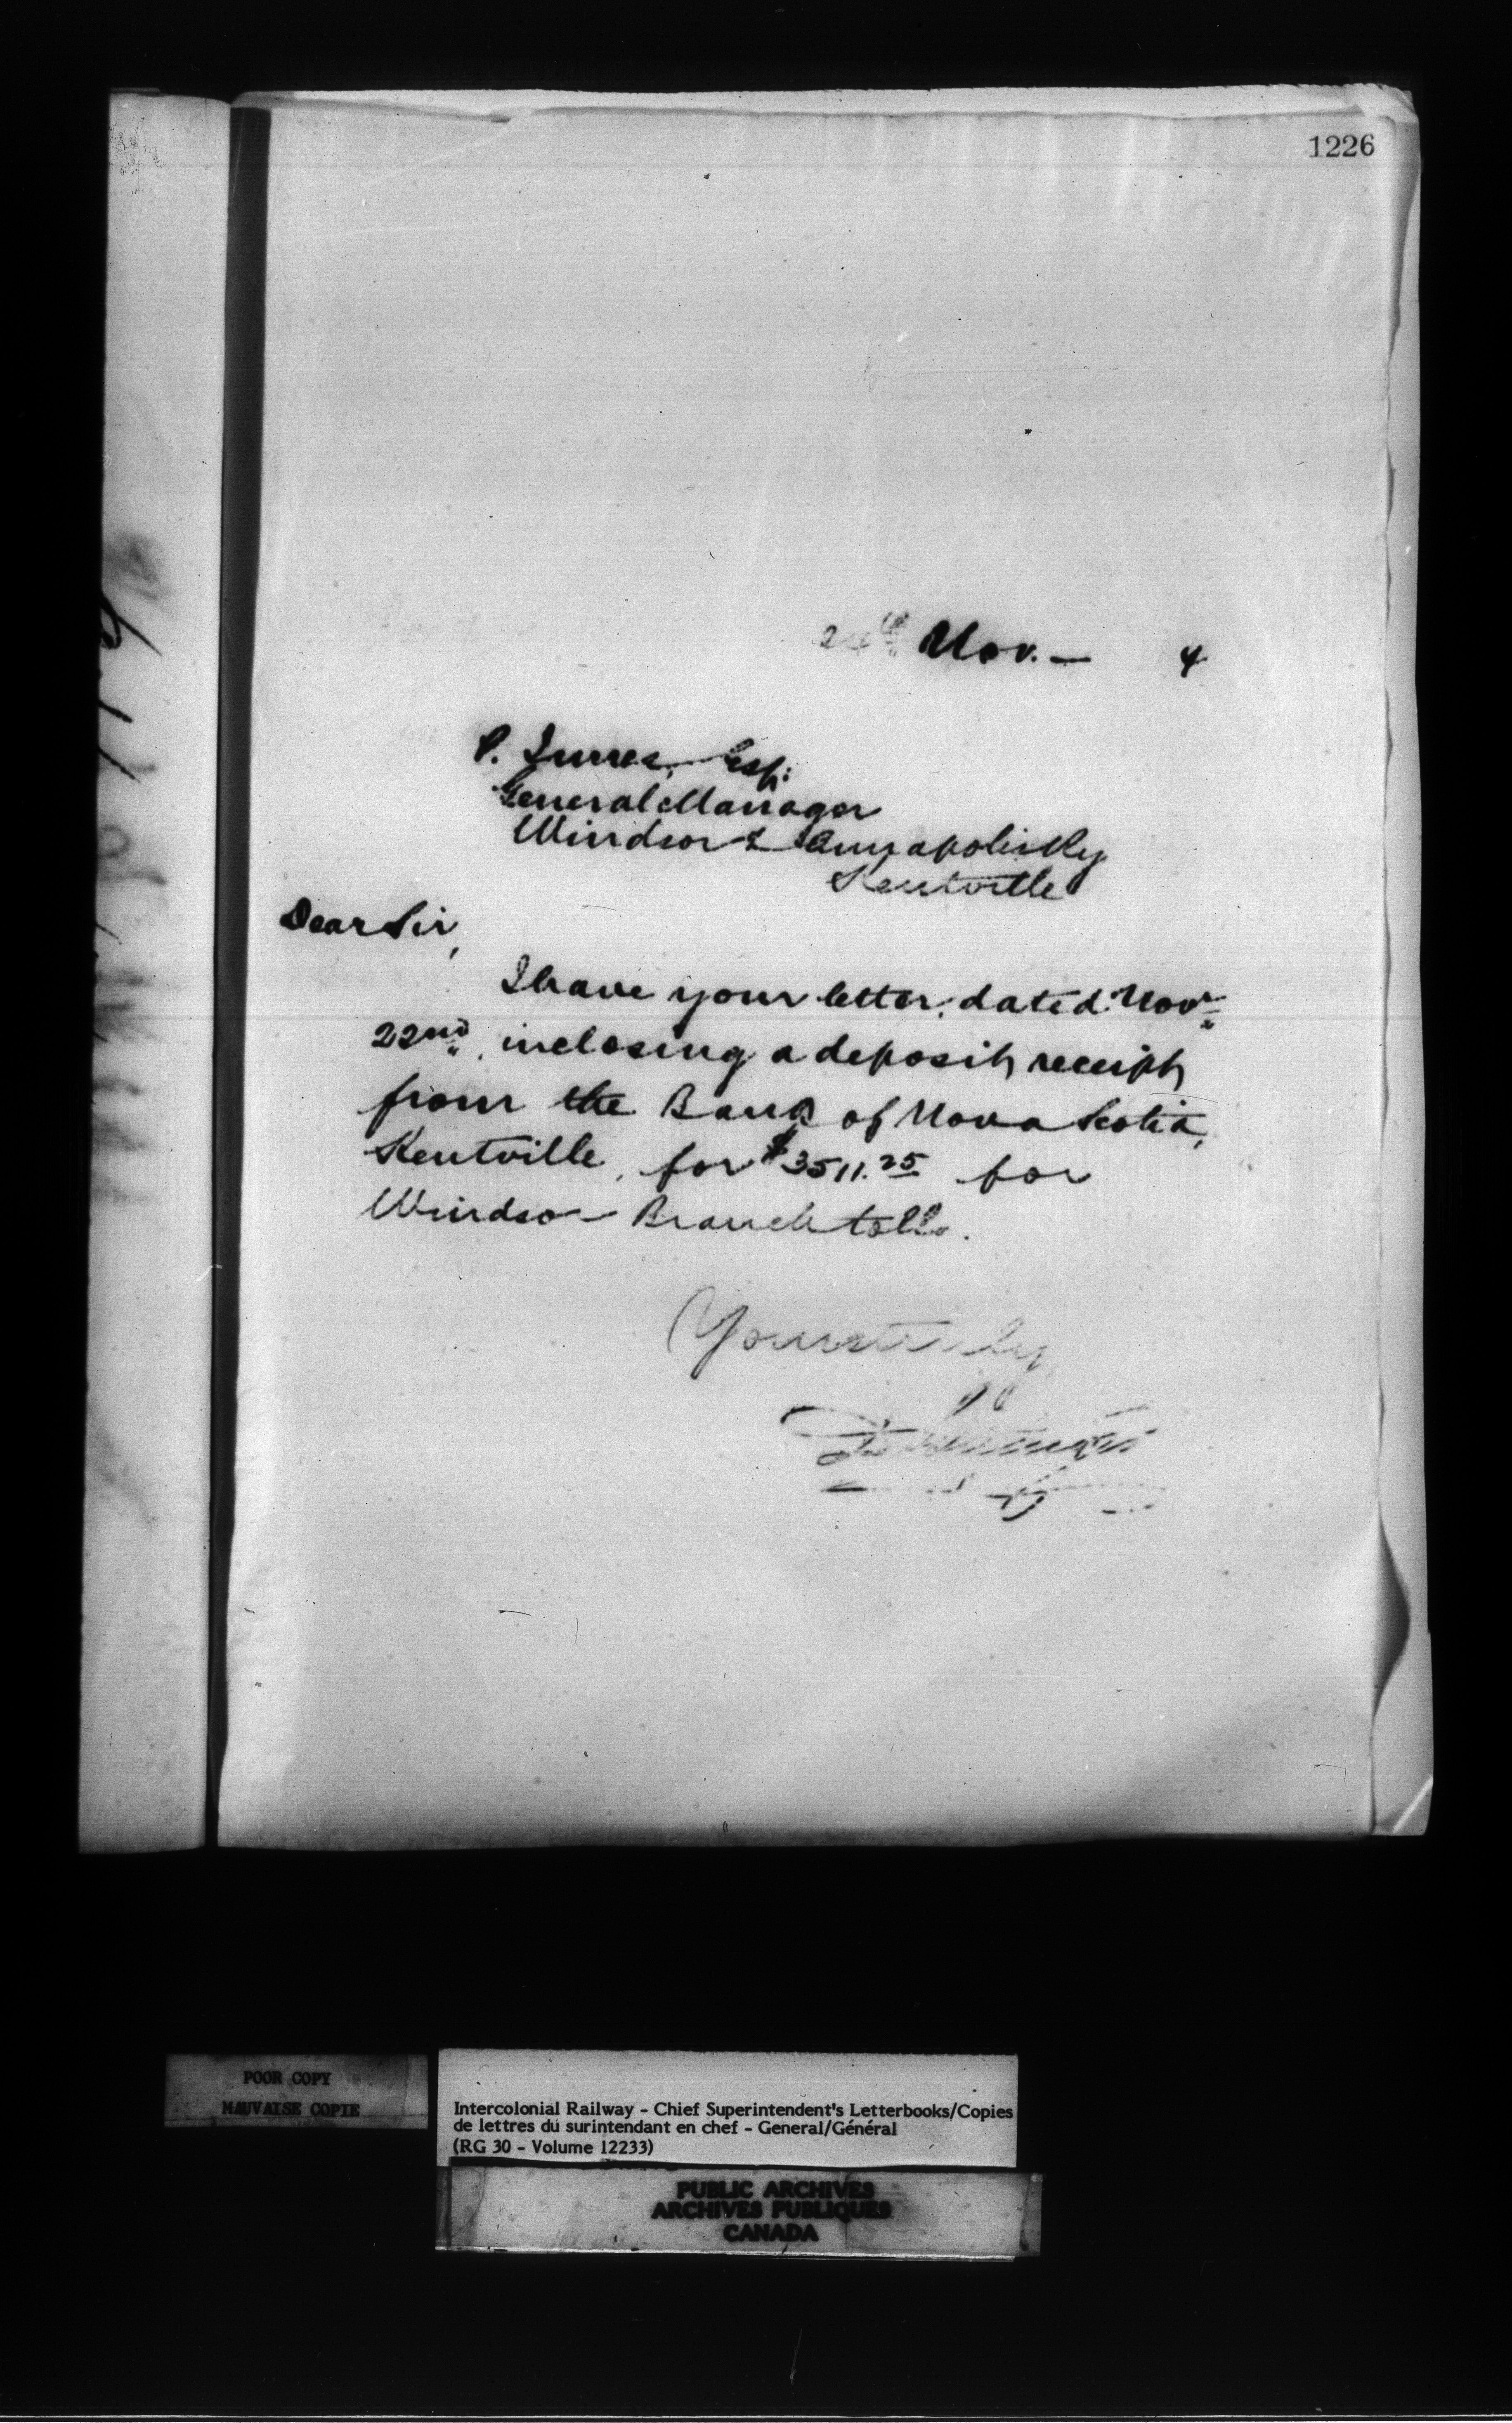 1226
24th Nov. — 4
P. Innes, Esq:
General Manager
Windsor & Annapolis Ry
Kentville
Dear Sir,
I have your letter, dated Novr
22nd, inclosing a deposit receipt
from the Bank of Nova Scotia,
Kentville, for $3511.25 for
Windsor Branch tolls.
Yours truly
POOR COPY
MAUVAISE COPIE
Intercolonial Railway - Chief Superintendent's Letterbooks/Copies
de lettres du surintendant en chef - General/Général
(RG 30 - Volume 12233)
PUBLIC ARCHIVES
ARCHIVES PUBLIQUES
CANADA